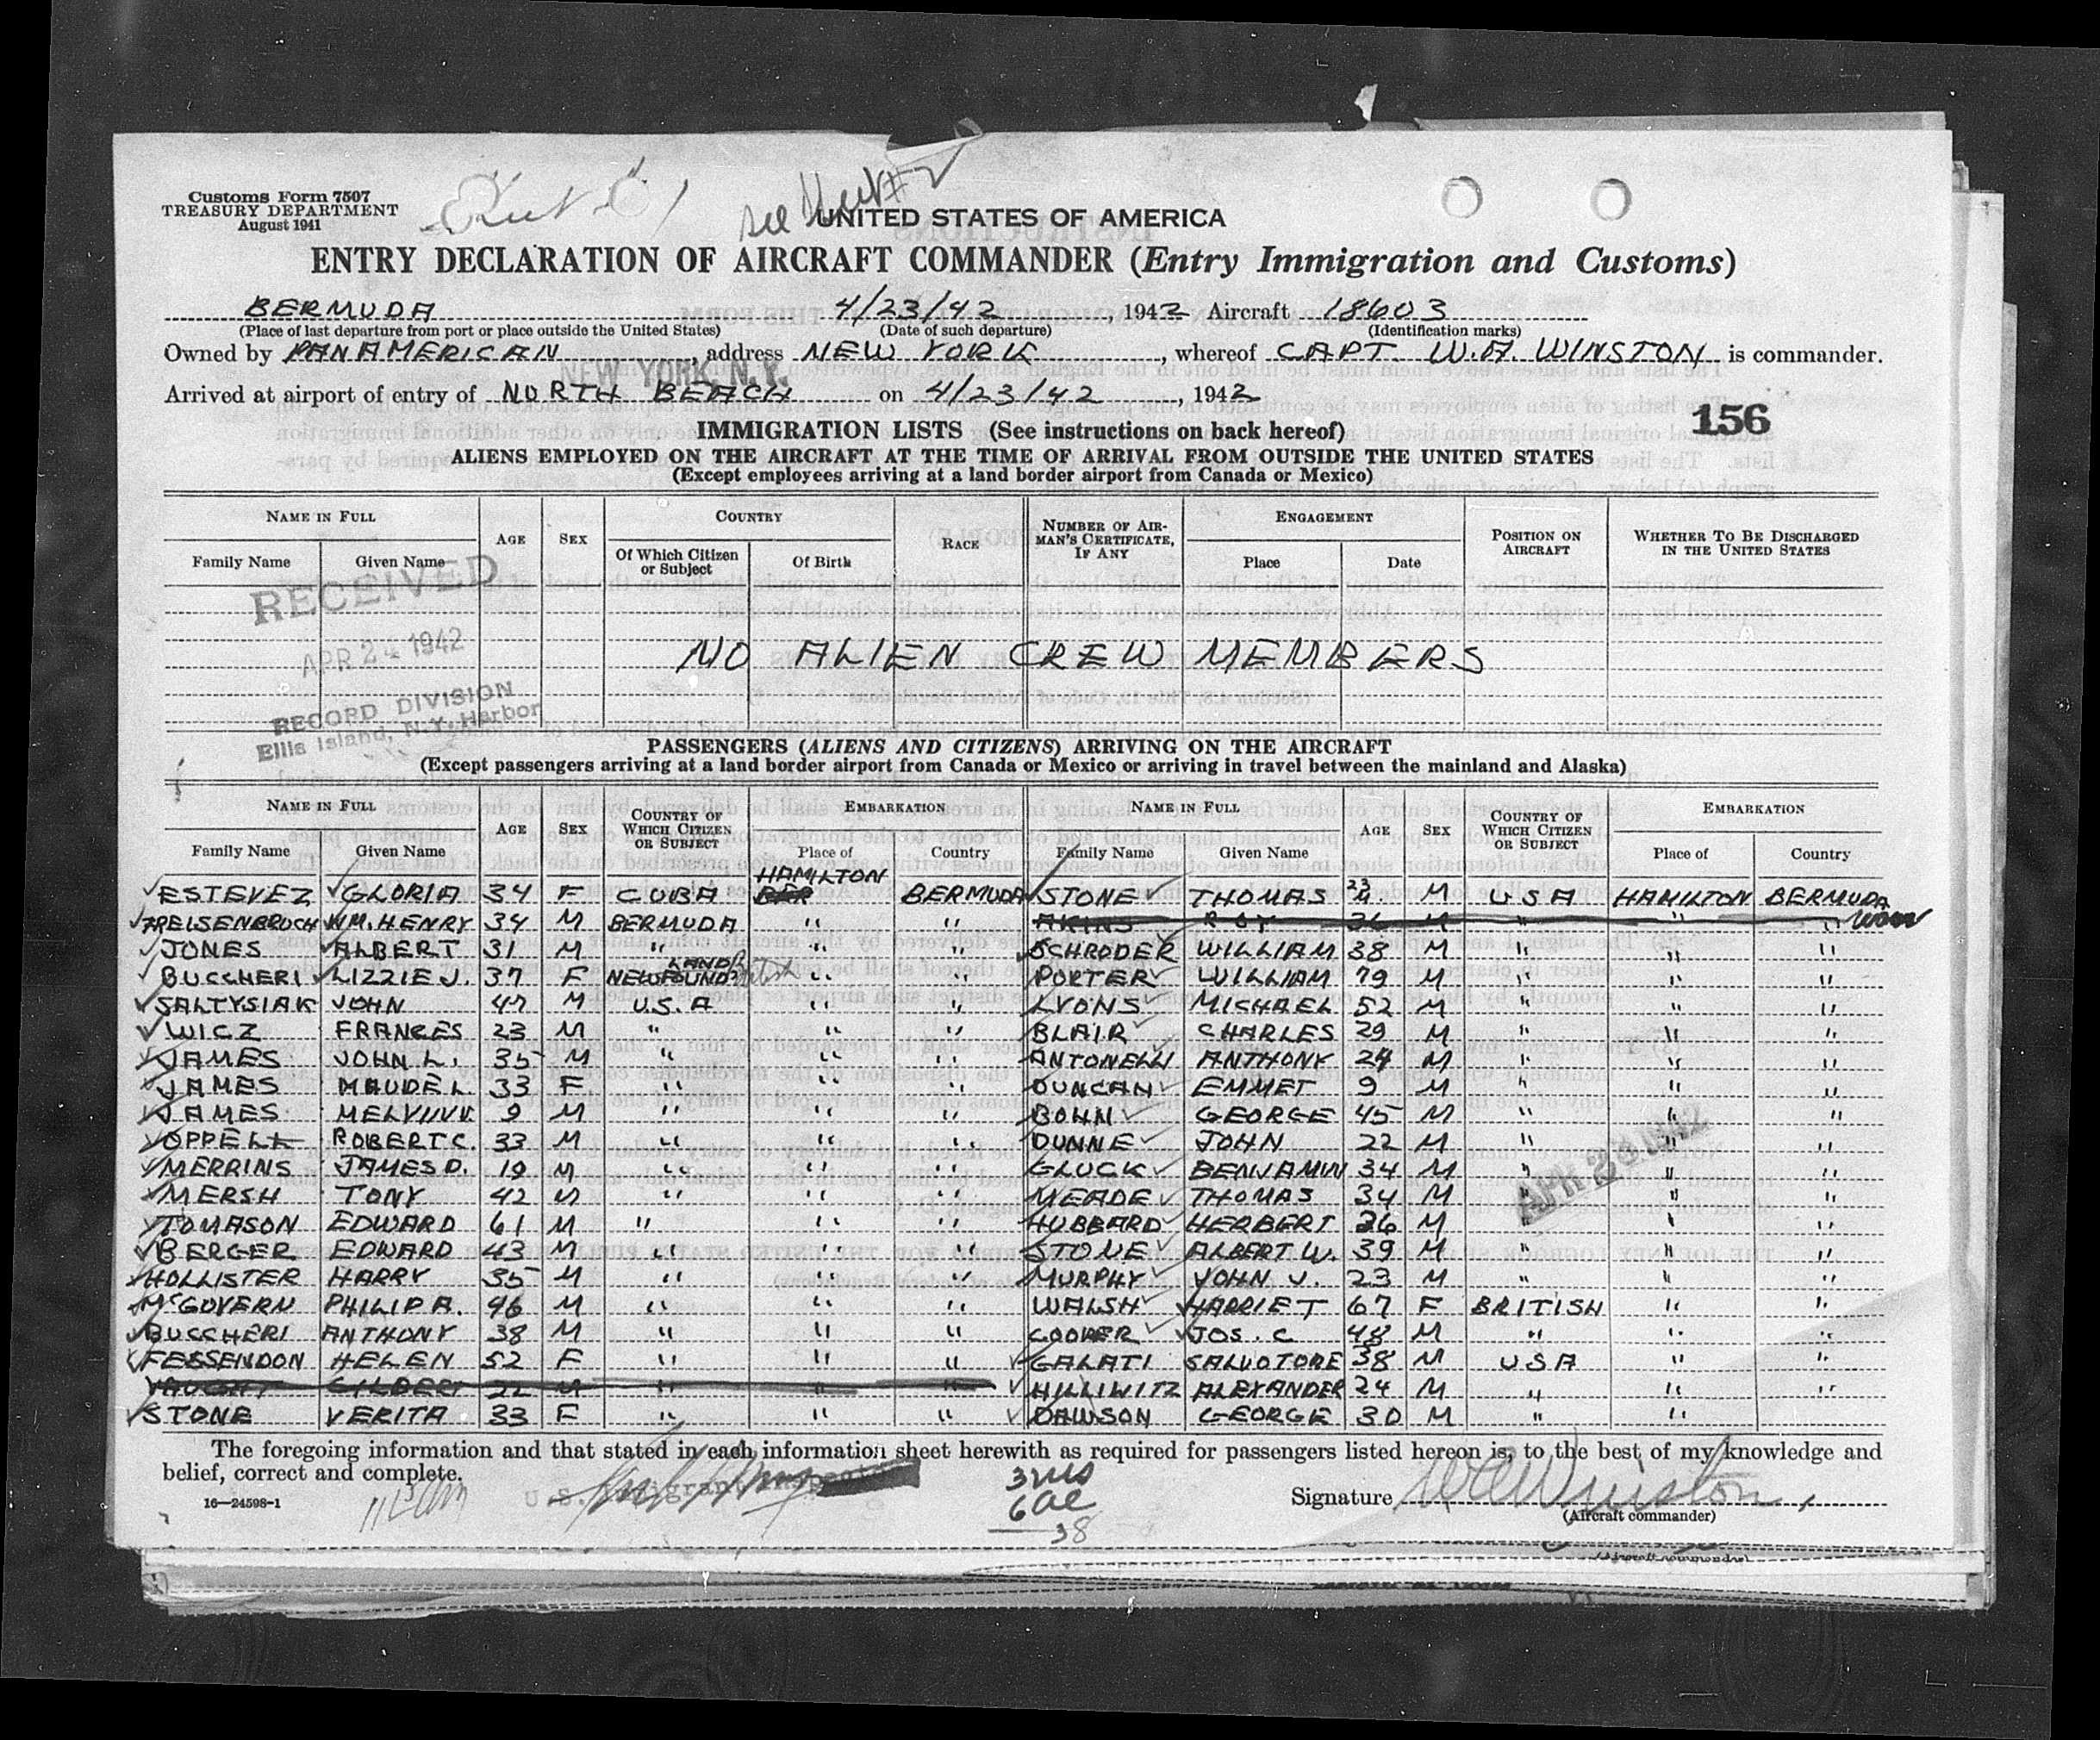 Customs Form 7507
TREASURY DEPARTMENT
August 1941
see Sheet #2
UNITED STATES OF AMERICA
ENTRY DECLARATION OF AIRCRAFT COMMANDER (Entry Immigration and Customs)
BERMUDA 4/23/42, 1942 Aircraft 18603
(Place of last departure from port or place outside the United States) (Date of such departure) (Identification marks)
Owned by PANAMERICAN, address NEW YORK, whereof CAPT. W.A. WINSTON is commander.
NEW YORK, N.Y.
Arrived at airport of entry of NORTH BEACH on 4/23/42, 1942
156
IMMIGRATION LISTS (See instructions on back hereof)
ALIENS EMPLOYED ON THE AIRCRAFT AT THE TIME OF ARRIVAL FROM OUTSIDE THE UNITED STATES
(Except employees arriving at a land border airport from Canada or Mexico)
NAME IN FULL AGE SEX COUNTRY RACE NUMBER OF AIRMAN'S CERTIFICATE, IF ANY ENGAGEMENT POSITION ON AIRCRAFT WHETHER TO BE DISCHARGED IN THE UNITED STATES
Family Name Given Name Of Which Citizen or Subject Of Birth Place Date
RECEIVED
APR 24 1942
RECORD DIVISION
Ellis Island, N.Y. Harbor
NO ALIEN CREW MEMBERS
PASSENGERS (ALIENS AND CITIZENS) ARRIVING ON THE AIRCRAFT
(Except passengers arriving at a land border airport from Canada or Mexico or arriving in travel between the mainland and Alaska)
NAME IN FULL AGE SEX COUNTRY OF WHICH CITIZEN OR SUBJECT EMBARKATION NAME IN FULL AGE SEX COUNTRY OF WHICH CITIZEN OR SUBJECT EMBARKATION
Family Name Given Name Place of Country Family Name Given Name Place of Country
HAMILTON
ESTEVEZ GLORIA 34 F CUBA BER BERMUDA STONE THOMAS 23 M USA HAMILTON BERMUDA
TRELSENBROCH WM. HENRY 34 M BERMUDA " " AKINS ROY 36 M " " "
JONES ALBERT 31 M " " " SCHRODER WILLIAM 38 M " " "
BUCCHERI LIZZIE J. 37 F NEWFOUNDLAND " " PORTER WILLIAM 79 M " " "
SALTYSIAK JOHN 47 M U.S.A " " LYONS MICHAEL 52 M " " "
WICZ FRANCES 23 M " " " BLAIR CHARLES 29 M " " "
JAMES JOHN L. 35 M " " " ANTONELLI ANTHONY 24 M " " "
JAMES MAUDE L. 33 F " " " DUNCAN EMMET 9 M " " "
JAMES MELVIN V. 9 M " " " BOHN GEORGE 45 M " " "
OPPELL ROBERT C. 33 M " " " DUNNE JOHN 22 M " " "
MERRINS JAMES D. 19 M " " " GLUCK BENJAMIN 34 M " " "
MERSH TONY 42 M " " " MEADE THOMAS 34 M " " "
TOMASON EDWARD 61 M " " " HUBBARD HERBERT 26 M " " "
BERGER EDWARD 43 M " " " STONE ALBERT W. 39 M " " "
HOLLISTER HARRY 35 M " " " MURPHY JOHN J. 23 M " " "
McGOVERN PHILIP A. 46 M " " " WALSH HARRIET 67 F BRITISH " "
BUCCHERI ANTHONY 38 M " " " COOPER JOS. C 48 M " " "
FESSENDON HELEN 52 F " " " GALATI SALVOTORE 38 M USA " "
VAUGHT GILBERT 22 M " " " HILLIWITZ ALEXANDER 24 M " " "
STONE VERITA 33 F " " " DAWSON GEORGE 30 M " "
The foregoing information and that stated in each information sheet herewith as required for passengers listed hereon is, to the best of my knowledge and
belief, correct and complete.
16—24598-1
U.S. Immigrant Inspector
6 al
38
Signature W A Winston
(Aircraft commander)
(Aircraft commander)